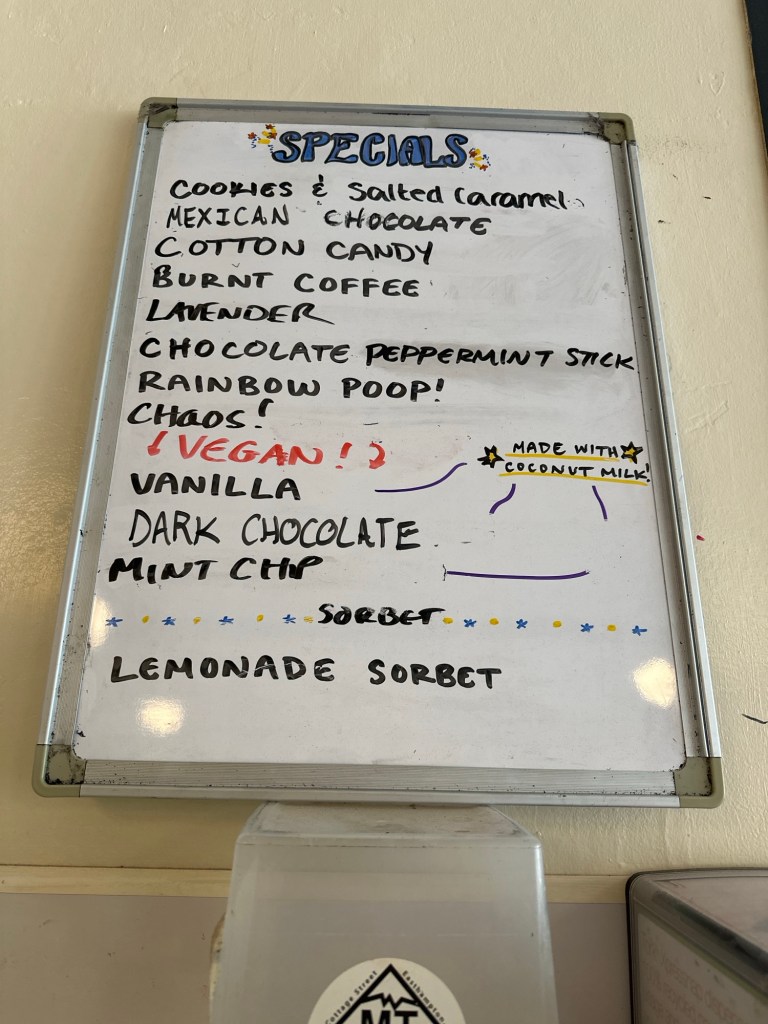 SPECIALS
COOKIES & Salted Caramel
MEXICAN CHOCOLATE
COTTON CANDY
BURNT COFFEE
LAVENDER
CHOCOLATE PEPPERMINT STICK
RAINBOW POOP!
CHaos!
VEGAN!
MADE WITH
COCONUT MILK!
VANILLA
DARK CHOCOLATE
MINT CHIP
SORBET
LEMONADE SORBET
Cottage Street Easthampton
MT